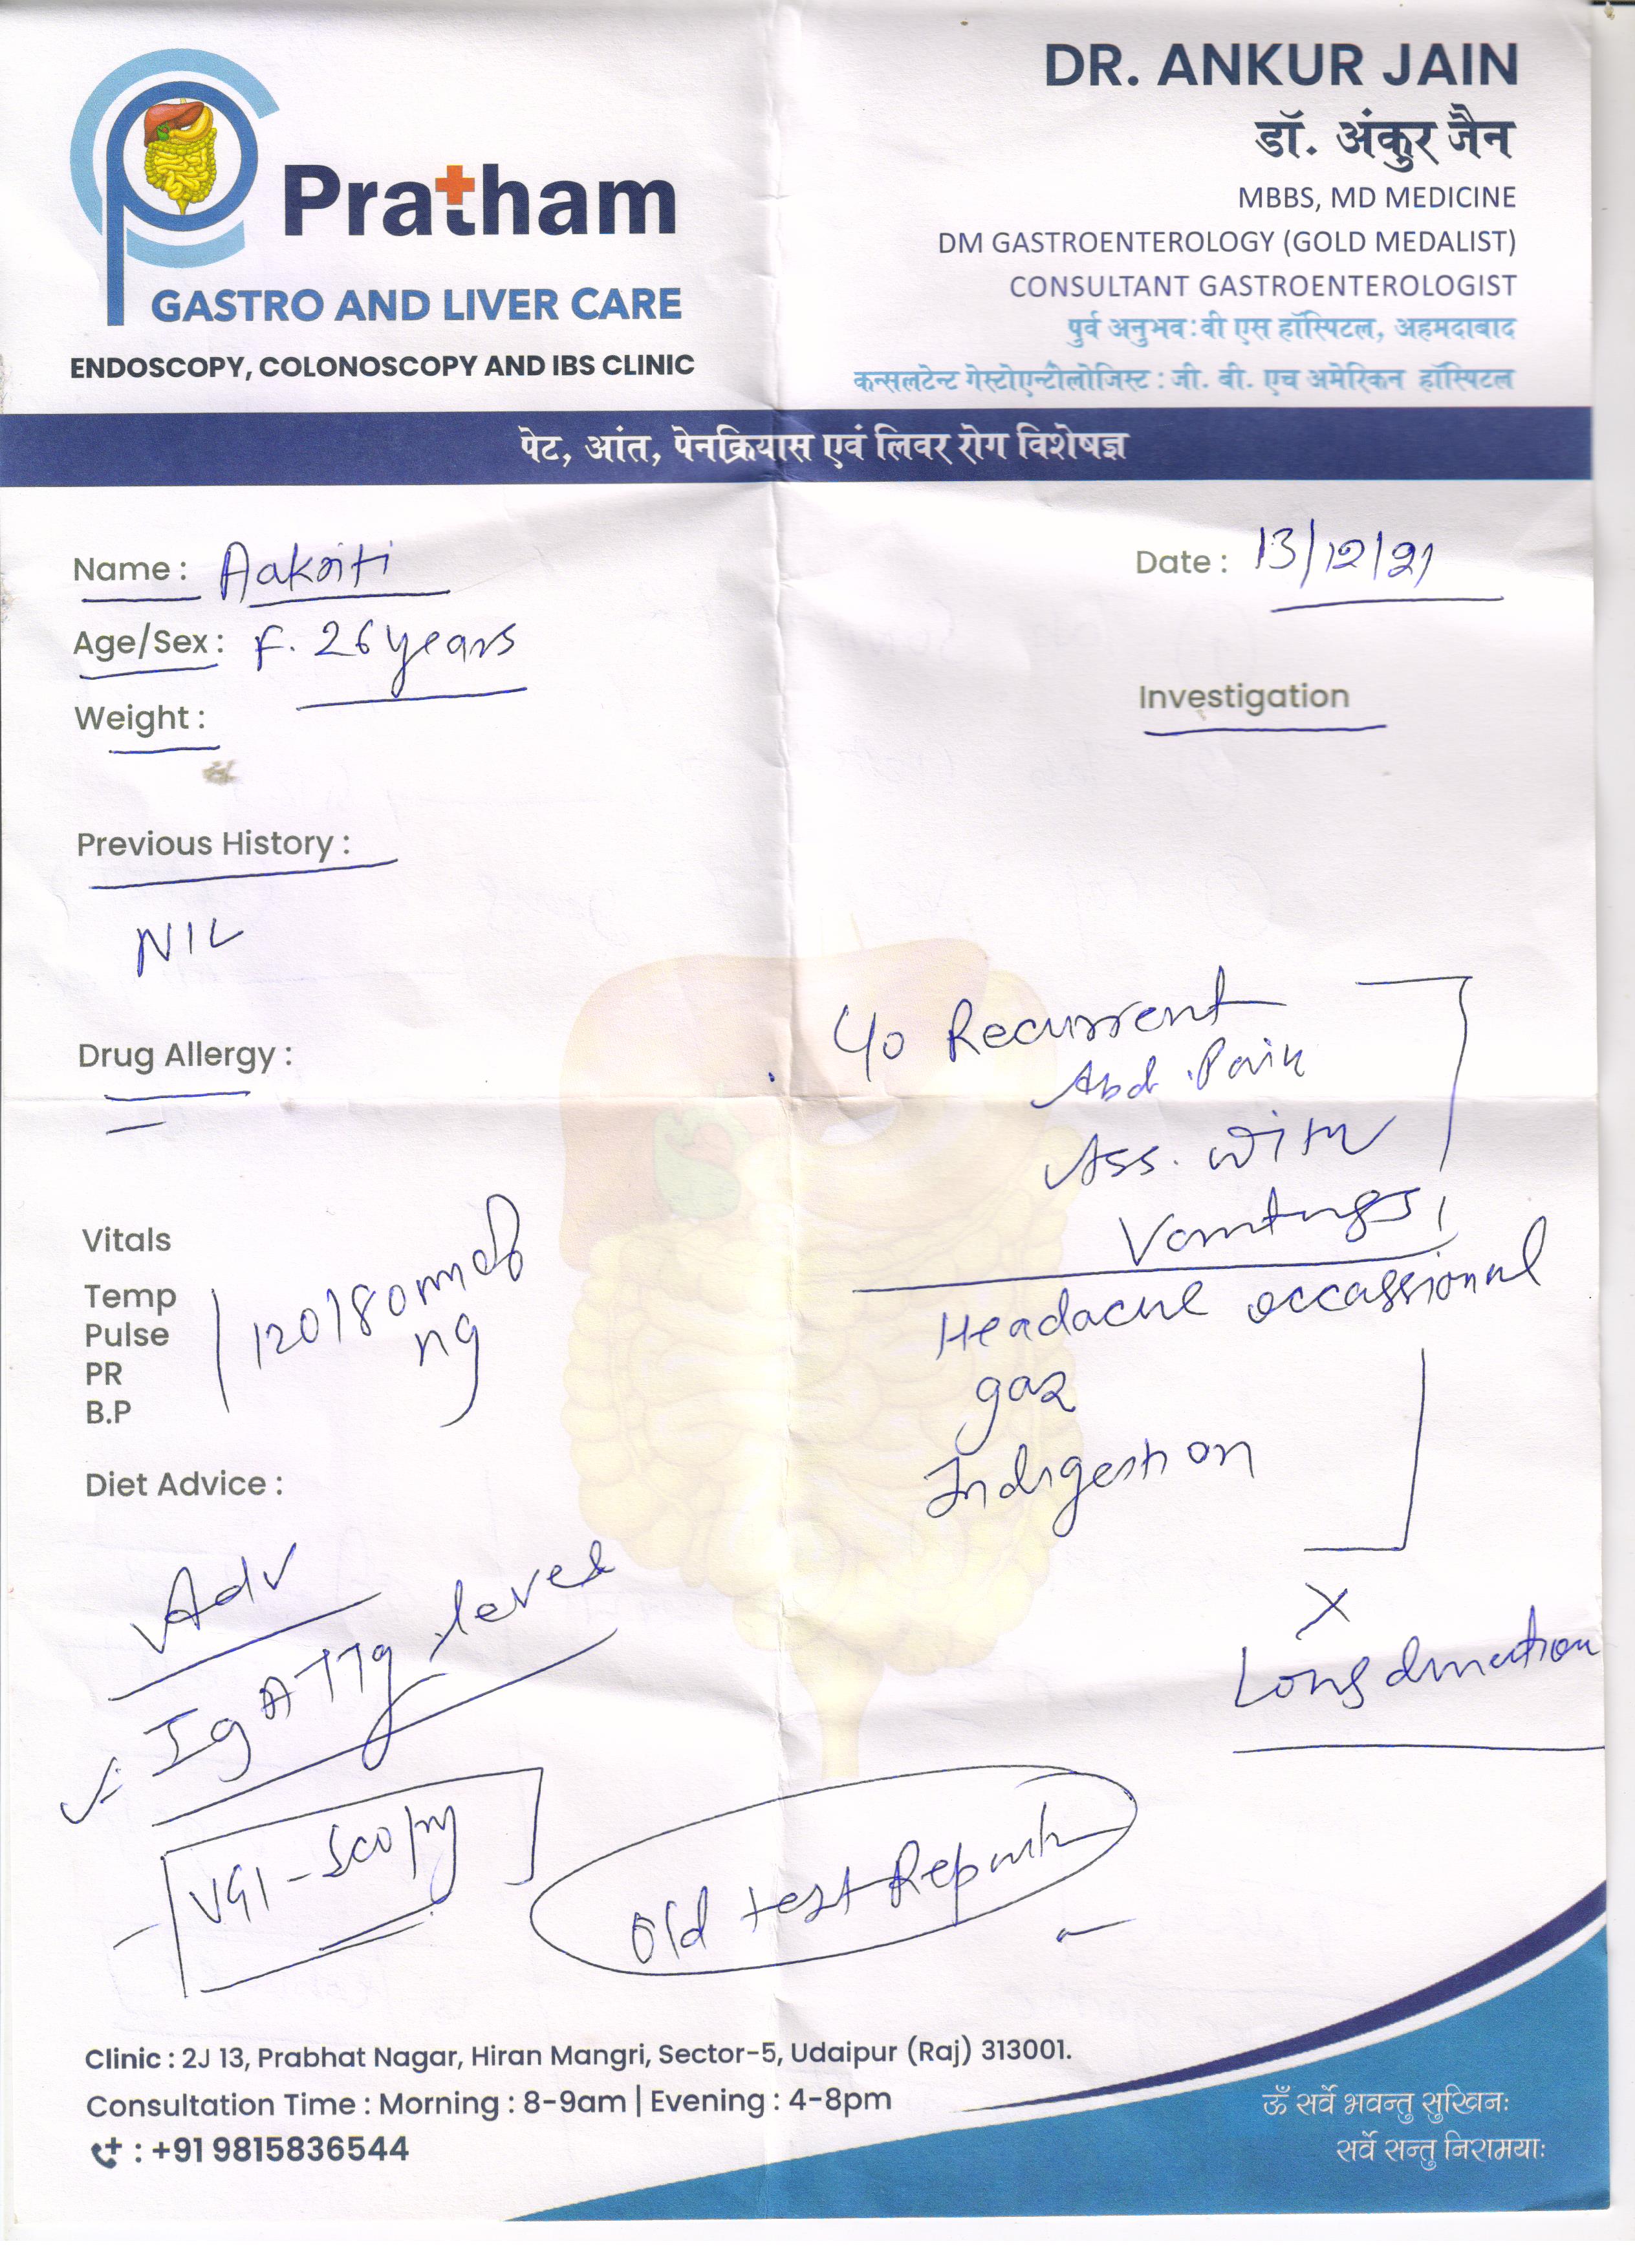 Pratham
GASTRO AND LIVER CARE
ENDOSCOPY, COLONOSCOPY AND IBS CLINIC
DR. ANKUR JAIN
डॉ. अंकुर जैन
MBBS, MD MEDICINE
DM GASTROENTEROLOGY (GOLD MEDALIST)
CONSULTANT GASTROENTEROLOGIST
पुर्व अनुभव : वी एस हॉस्पिटल, अहमदाबाद
कन्सलटेन्ट गेस्टोएन्टोलोजिस्ट : जी. बी. एच अमेरिकन हॉस्पिटल
पेट, आंत, पेनक्रियास एवं लिवर रोग विशेषज्ञ
Name : Aakriti
Date : 13/12/21
Age/Sex : F. 26 years
Weight :
Investigation
Previous History :
NIL
Drug Allergy :
C/o Recurrent
Abd. Pain
Ass. with
Vomitings,
Headache occassional
gas
Indigestion
X
Long duration
Vitals
Temp
Pulse
PR
B.P
120/80 mm of
Hg
Diet Advice :
Adv
IgA TTg level
UGI-Scopy
Old test Reports
Clinic : 2J 13, Prabhat Nagar, Hiran Mangri, Sector-5, Udaipur (Raj) 313001.
Consultation Time : Morning : 8-9am | Evening : 4-8pm
: +91 9815836544
ॐ सर्वे भवन्तु सुखिनः
सर्वे सन्तु निरामयाः